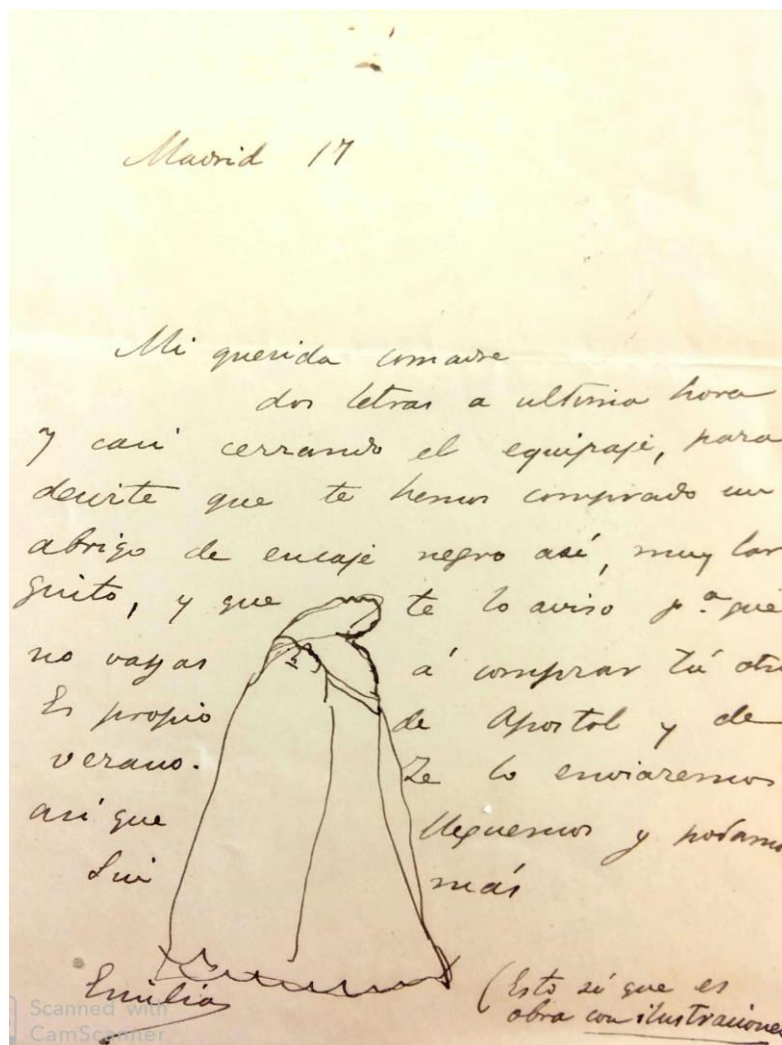 Madrid 17
Mi querida comadre
dos letras a ultima hora
y casi cerrando el equipaje, para
decirte que te hemos comprado un
abrigo de encaje negro así, muy lar
guito, y que te lo aviso p.ª que
no vayas á comprar tú otro
Es propio de Apostol y de
verano. Te lo enviaremos
así que lleguemos y podamos
Sin más
Emilia
(Esto sí que es
obra con ilustraciones
Scanned with
CamScanner